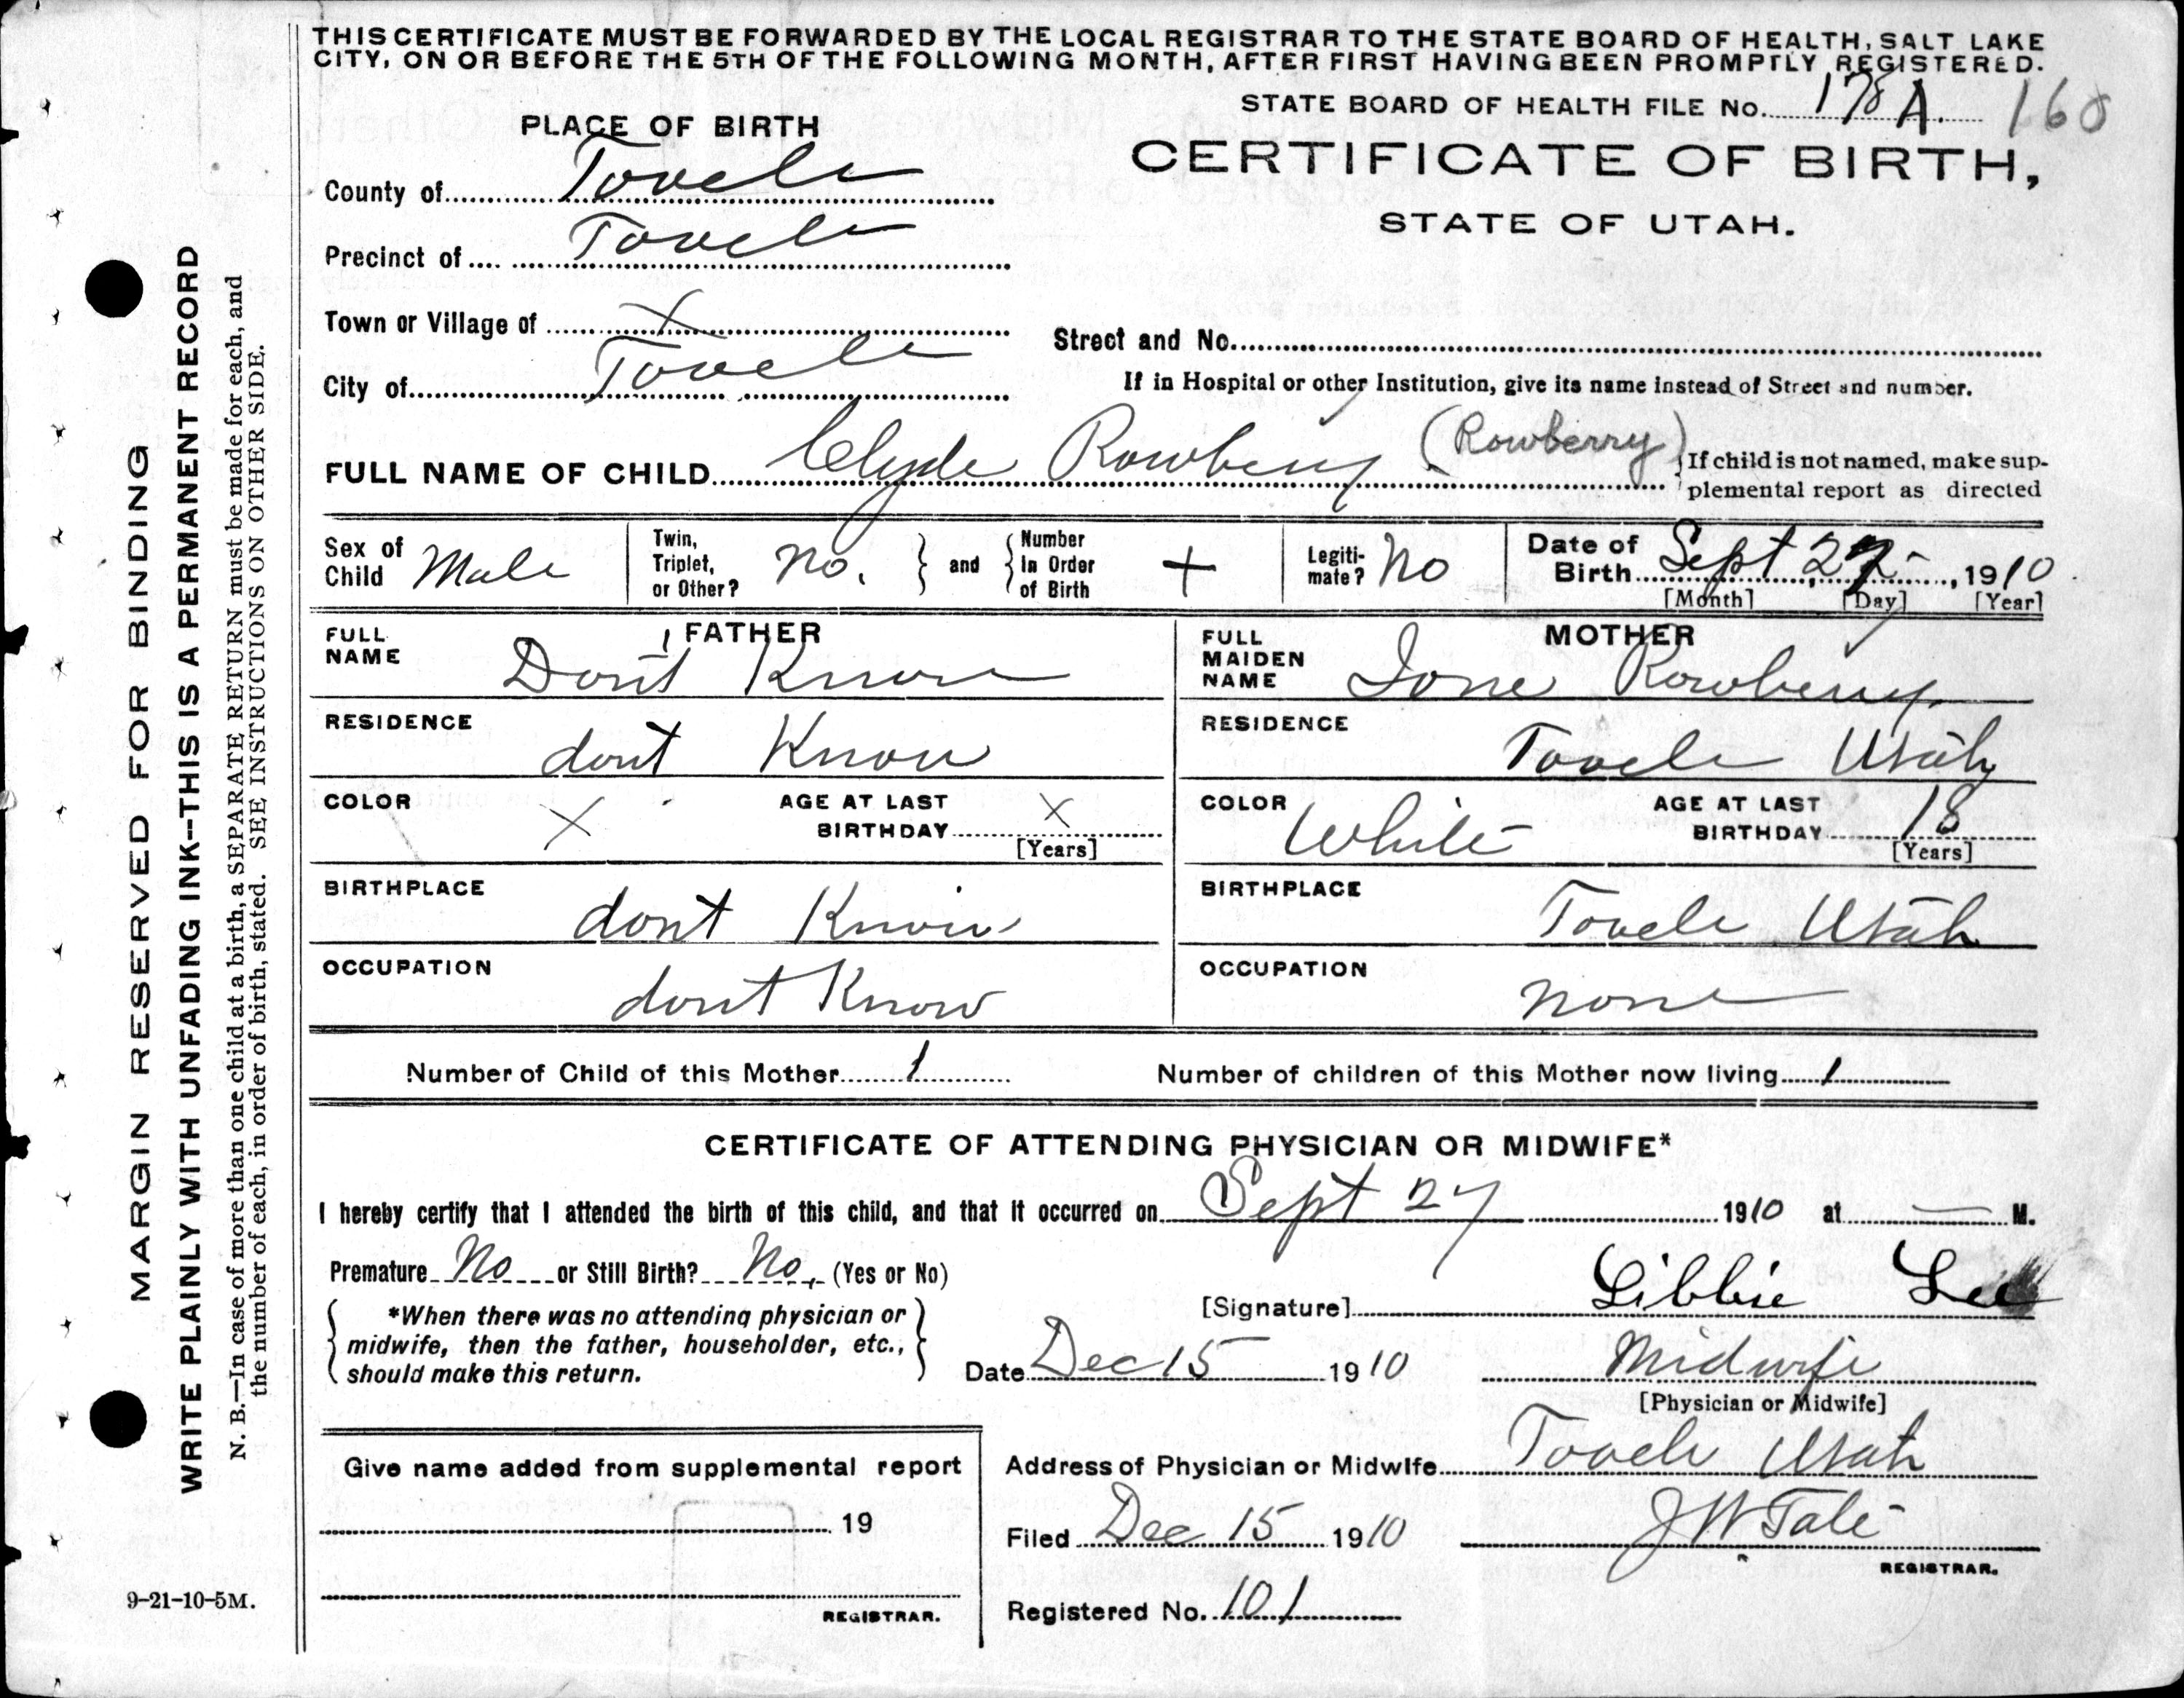 THIS CERTIFICATE MUST BE FORWARDED BY THE LOCAL REGISTRAR TO THE STATE BOARD OF HEALTH, SALT LAKE
CITY, ON OR BEFORE THE 5TH OF THE FOLLOWING MONTH, AFTER FIRST HAVING BEEN PROMPTLY REGISTERED.
STATE BOARD OF HEALTH FILE No. 178 A. 160
PLACE OF BIRTH
CERTIFICATE OF BIRTH,
STATE OF UTAH.
County of Tooele
Precinct of Tooele
Town or Village of X
Street and No.
City of Tooele
If in Hospital or other Institution, give its name instead of Street and number.
FULL NAME OF CHILD Clyde Rowberry (Rowberry)
If child is not named, make sup-
plemental report as directed
Sex of Child Male
Twin, Triplet, or Other? No.
and
Number In Order of Birth +
Legiti-mate? No
Date of Birth Sept 27, 1910
[Month] [Day] [Year]
FATHER
FULL NAME Don't Know
RESIDENCE dont Know
COLOR X
AGE AT LAST BIRTHDAY X
[Years]
BIRTHPLACE dont Know
OCCUPATION dont Know
MOTHER
FULL MAIDEN NAME Ione Rowberry
RESIDENCE Tooele Utah
COLOR White
AGE AT LAST BIRTHDAY 18
[Years]
BIRTHPLACE Tooele Utah
OCCUPATION none
Number of Child of this Mother 1
Number of children of this Mother now living 1
CERTIFICATE OF ATTENDING PHYSICIAN OR MIDWIFE*
I hereby certify that I attended the birth of this child, and that it occurred on Sept 27 1910 at — M.
Premature No or Still Birth? No. (Yes or No)
*When there was no attending physician or
midwife, then the father, householder, etc.,
should make this return.
[Signature] Libbie Lee
Date Dec 15 1910
Midwife
[Physician or Midwife]
Give name added from supplemental report
19
REGISTRAR.
Address of Physician or Midwife Tooele Utah
Filed Dec 15 1910
J W Tate
REGISTRAR.
Registered No. 101
9-21-10-5M.
MARGIN RESERVED FOR BINDING
WRITE PLAINLY WITH UNFADING INK--THIS IS A PERMANENT RECORD
N. B.—In case of more than one child at a birth, a SEPARATE RETURN must be made for each, and
the number of each, in order of birth, stated. SEE INSTRUCTIONS ON OTHER SIDE.